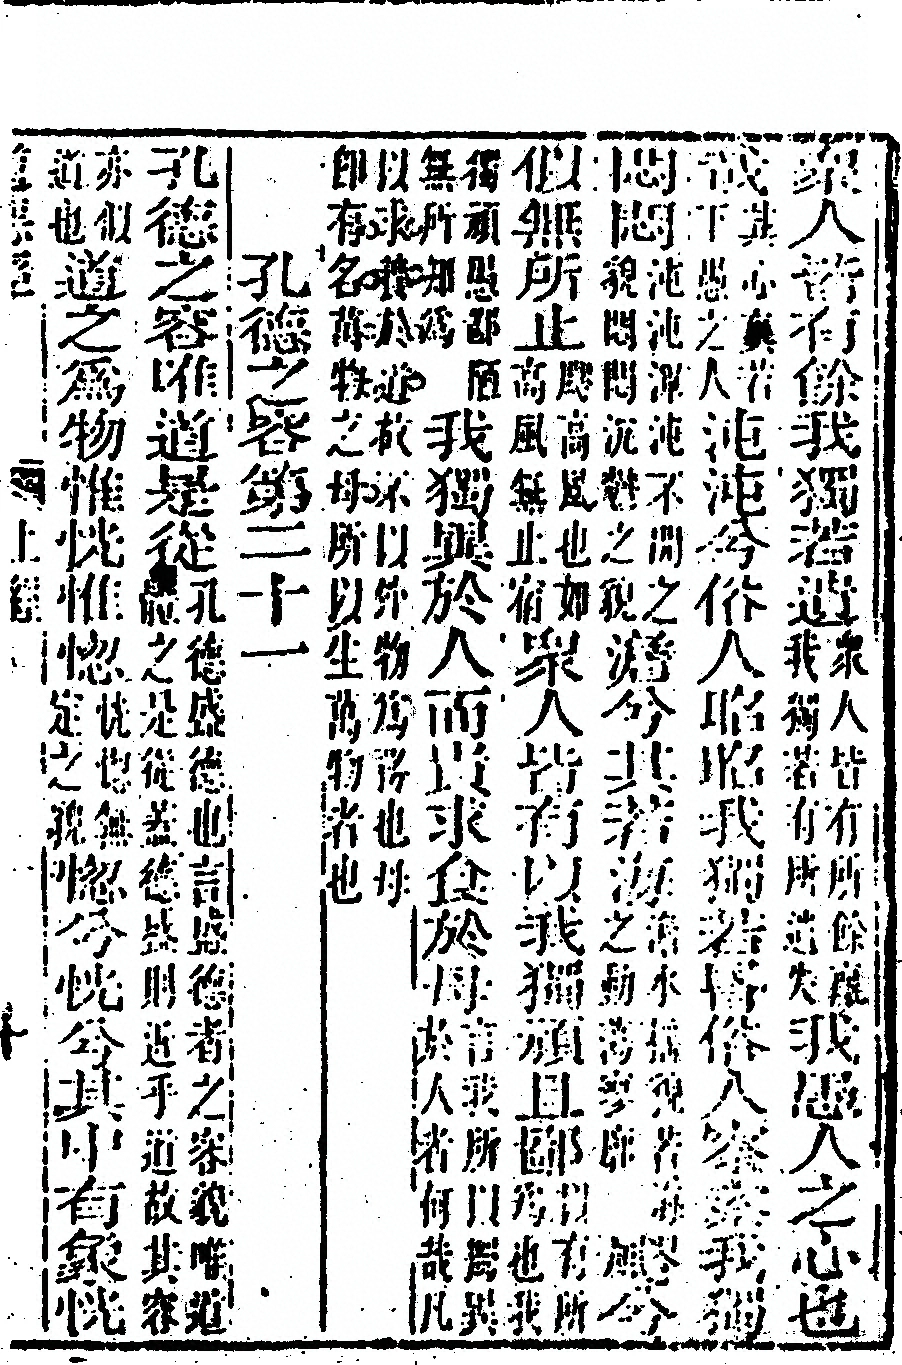 衆人皆有餘我獨若遺衆人皆有所餘廢我獨若有所遺失我愚人之心也
哉其心真若下愚之人沌沌兮俗人昭昭我獨若昏俗人察察我獨
悶悶沌沌渾沌不開之貌悶悶沉鬱之貌澹兮其若海澹水恬貌若海之動蕩寥廓飂兮
似無所止飂高風也如高風無止宿衆人皆有以我獨頑且鄙以有所爲也我
獨頑愚鄙陋無所知爲我獨異於人而貴求食於母言我所以爲異於人者何哉凡
以求養於道故不以外物爲務也母即有名萬物之母所以生萬物者也
孔德之容第二十一
孔德之容唯道是從孔德盛德也言盛德者之容貌唯道體之是從蓋德盛則近乎道故其容
亦似道也道之爲物惟恍惟惚恍惚無定之貌惚兮恍兮其中有象恍
上經
十